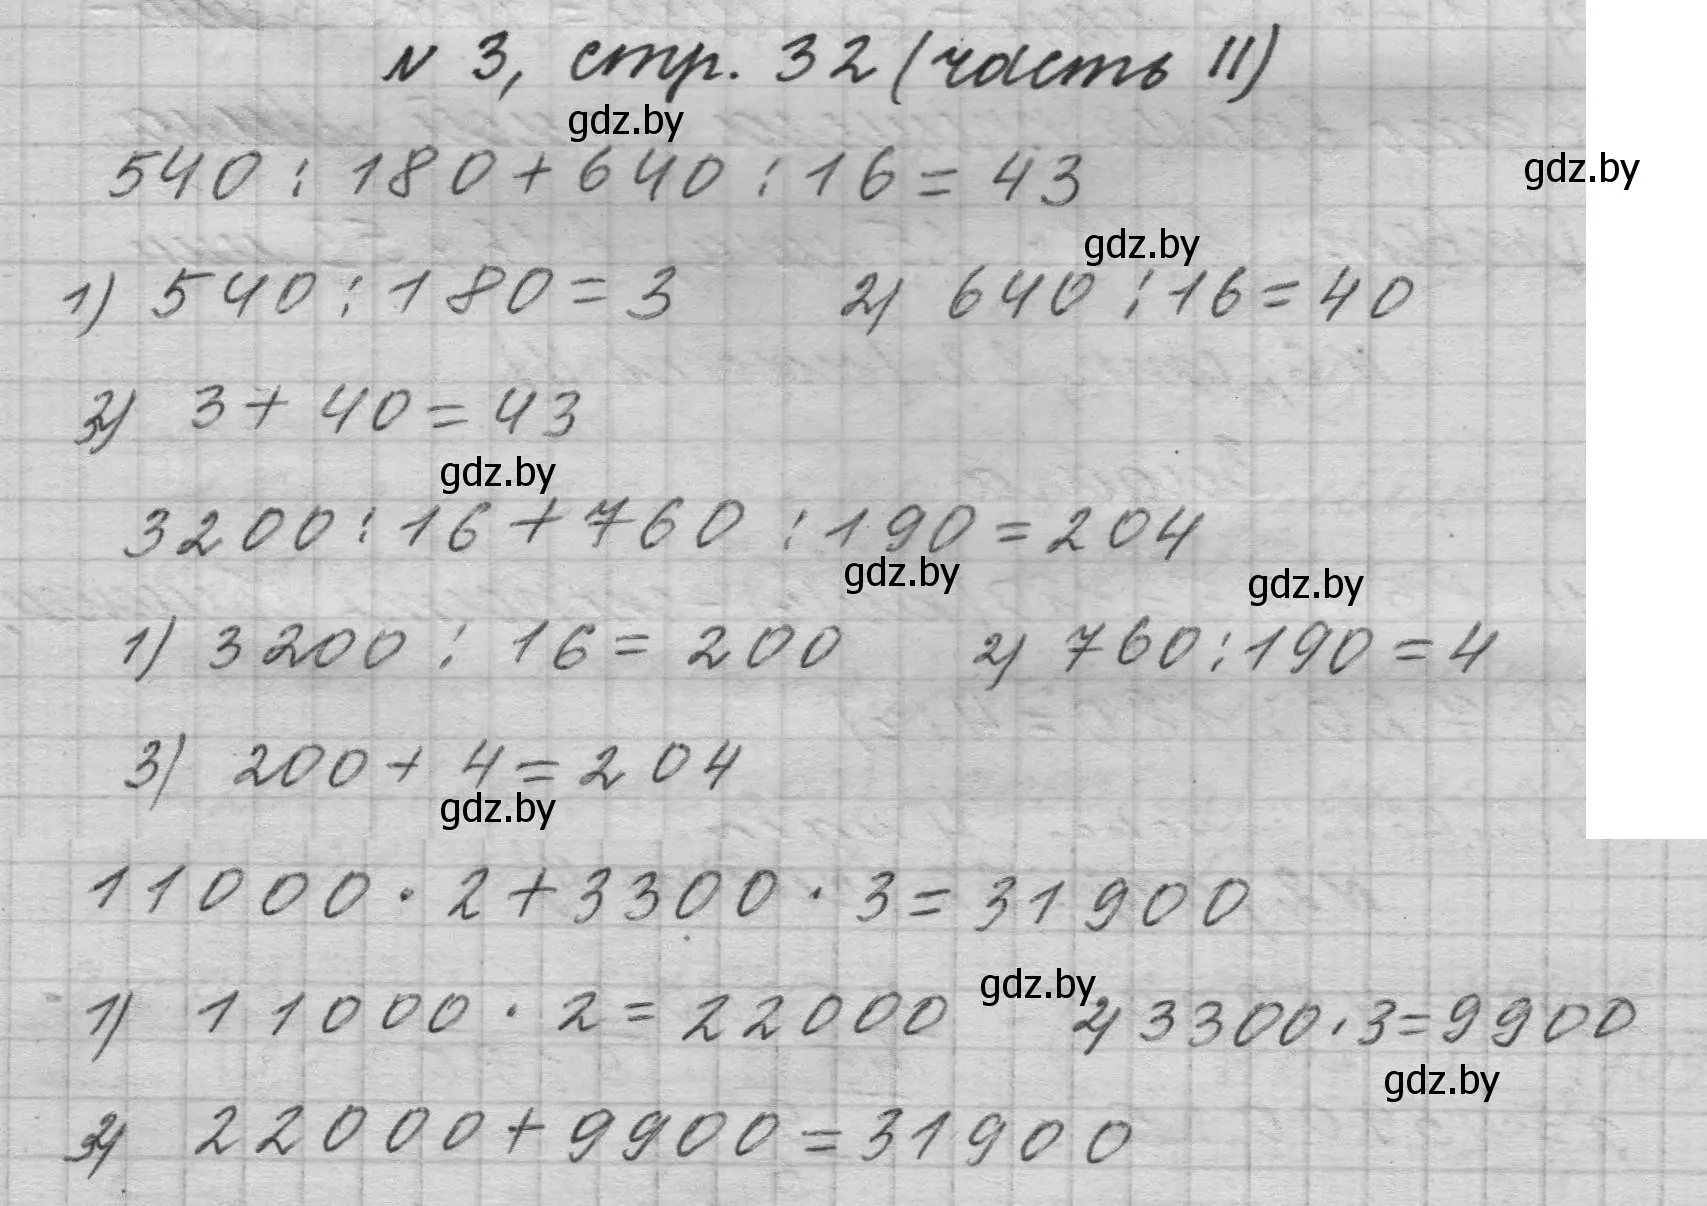 N 3, стр. 32 (часть II)
gdz.by
540 : 180 + 640 : 16 = 43
gdz.by
gdz.by
1) 540 : 180 = 3 2) 640 : 16 = 40
3) 3 + 40 = 43
gdz.by
3200 : 16 + 760 : 190 = 204
gdz.by gdz.by
1) 3200 : 16 = 200 2) 760 : 190 = 4
3) 200 + 4 = 204
gdz.by
11000 · 2 + 3300 · 3 = 31900
gdz.by
1) 11000 · 2 = 22000 2) 3300 · 3 = 9900
gdz.by
3) 22000 + 9900 = 31900